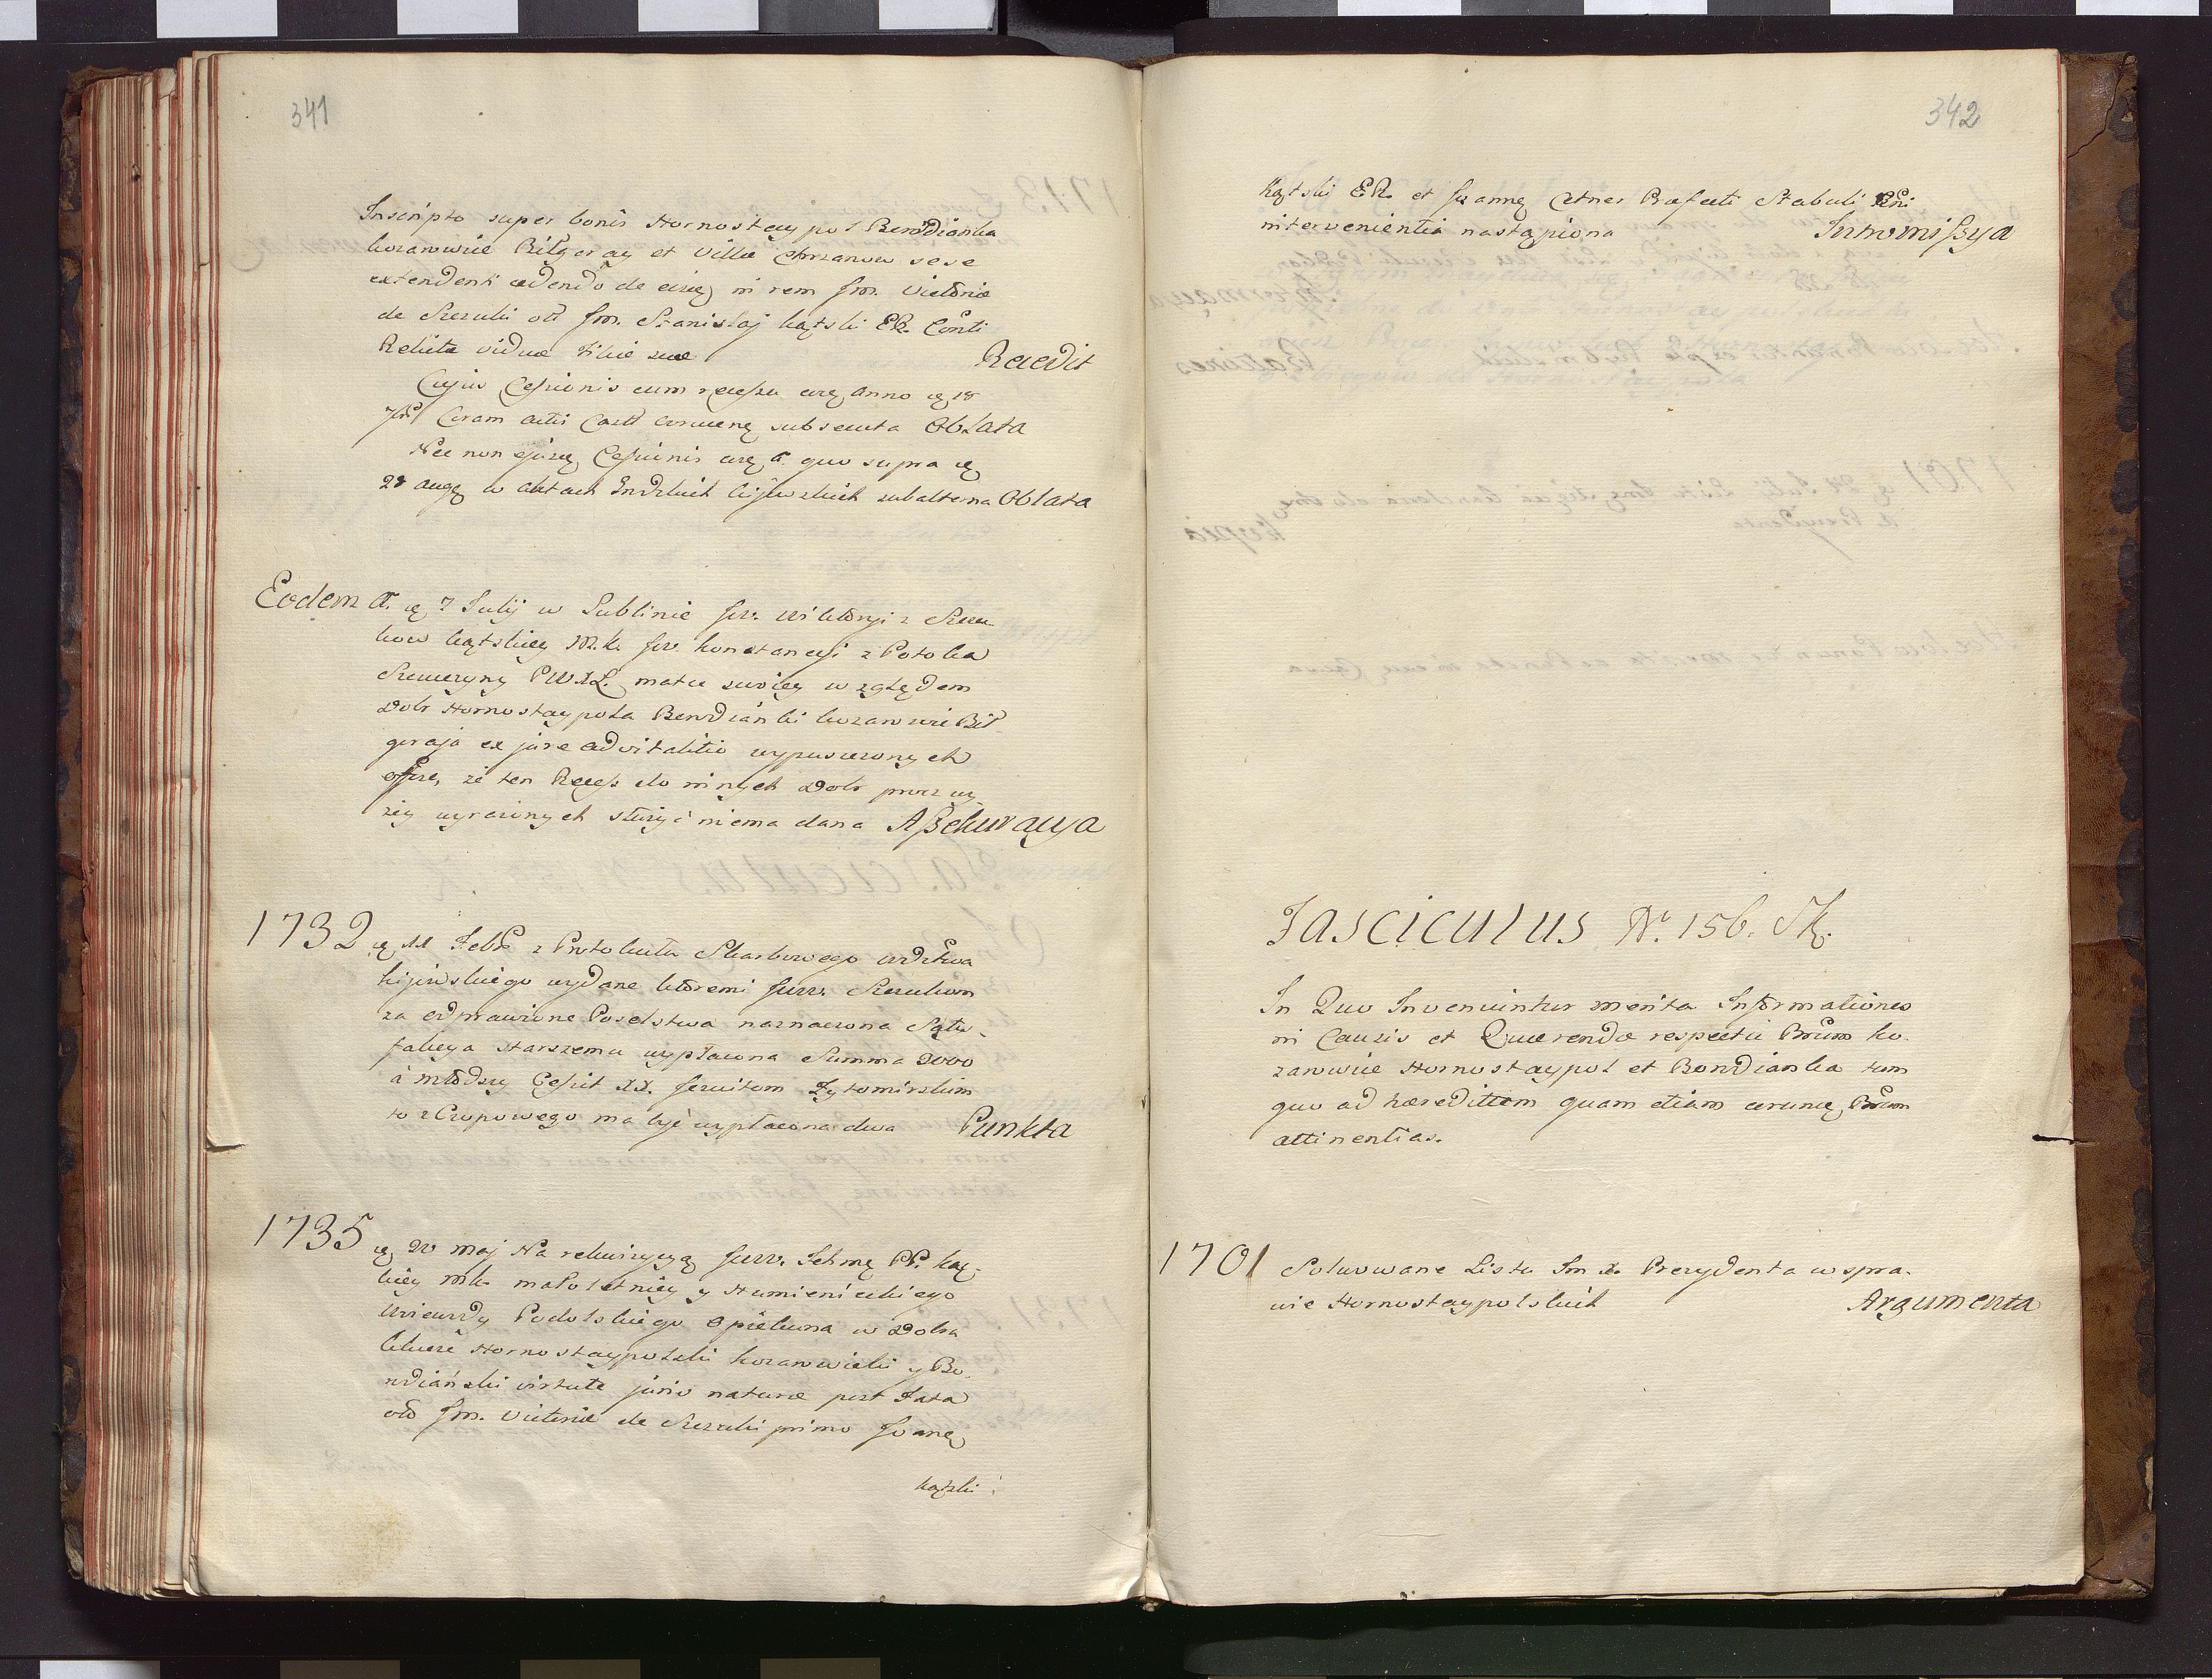 341
Inscripto super bonis Hornostaypol Bondianka
kozarowice Bilgoray et Villa Chrzanow sese
extendenti cedendo de eisq in rem Jm. Victoriæ
de Szczuki olim Jm. Stanislaj kątski
Relicta vidua Filiæ suæ Recedit
Cujus Cessionis cum recessu
Coram actis subsecuta Oblata
Nec non ejusq Cessionis quo supra
28 augq w aktach subalterna Oblata
Eodem A. q 7 Julij w Lublinie Jw. Wiktoryi z Szczu
kow kątskiey M.k. Jw. konstancyi z Potoka
Szczuczyny matce swoiey względem
Dobr Hornostaypola Bondianki kozarowic Bił-
goraja ex jure advitalitio wypuszczonych
że ten Recess do innych Dobr procz wy
żey wyrażonych służyć niema dana Aszekuracya
1732 q 11 Febr z Protokułu Skarbowego wdztwa
kijowskiego wydane ktoremi Jww. Szczukom
za odprawione Poselstwa naznaczona Saty-
fakcya starszemu wypłacona Summa 2000
a młodszy Cessit XX. Jezuitom Zytomirskim
to z Czopowego ma być wypłacona dwa Punkta
1735 q 20 Maj Na rekwizycyą Jww.
kiey małoletniey y Humienieckiego
Podolskiego Opiekuna w Dobra
klucze Hornostaypolski kozarowicki y Bo-
ndiański virtute juris naturæ post Fata
olim Jm. Victoriæ de Szczuki primo Joanq
kątski
342
kątski et Joannq Cetner Præfecti Stabuli Rni
intervenientia nastąpiona Intromissya
Fasciculus N. 156.
In Quo Inveniuntur merita Informationes
in Causis et Quærendæ respectu Bnrum ko-
zarowice Hornostaypol et Bondianka tum
quo ad hæreditatem quam etiam earumq Bnrum
attinentias.
1701 Solwowane Listu Im X. Prezydenta w spra-
wie Hornostaypolskich Argumenta